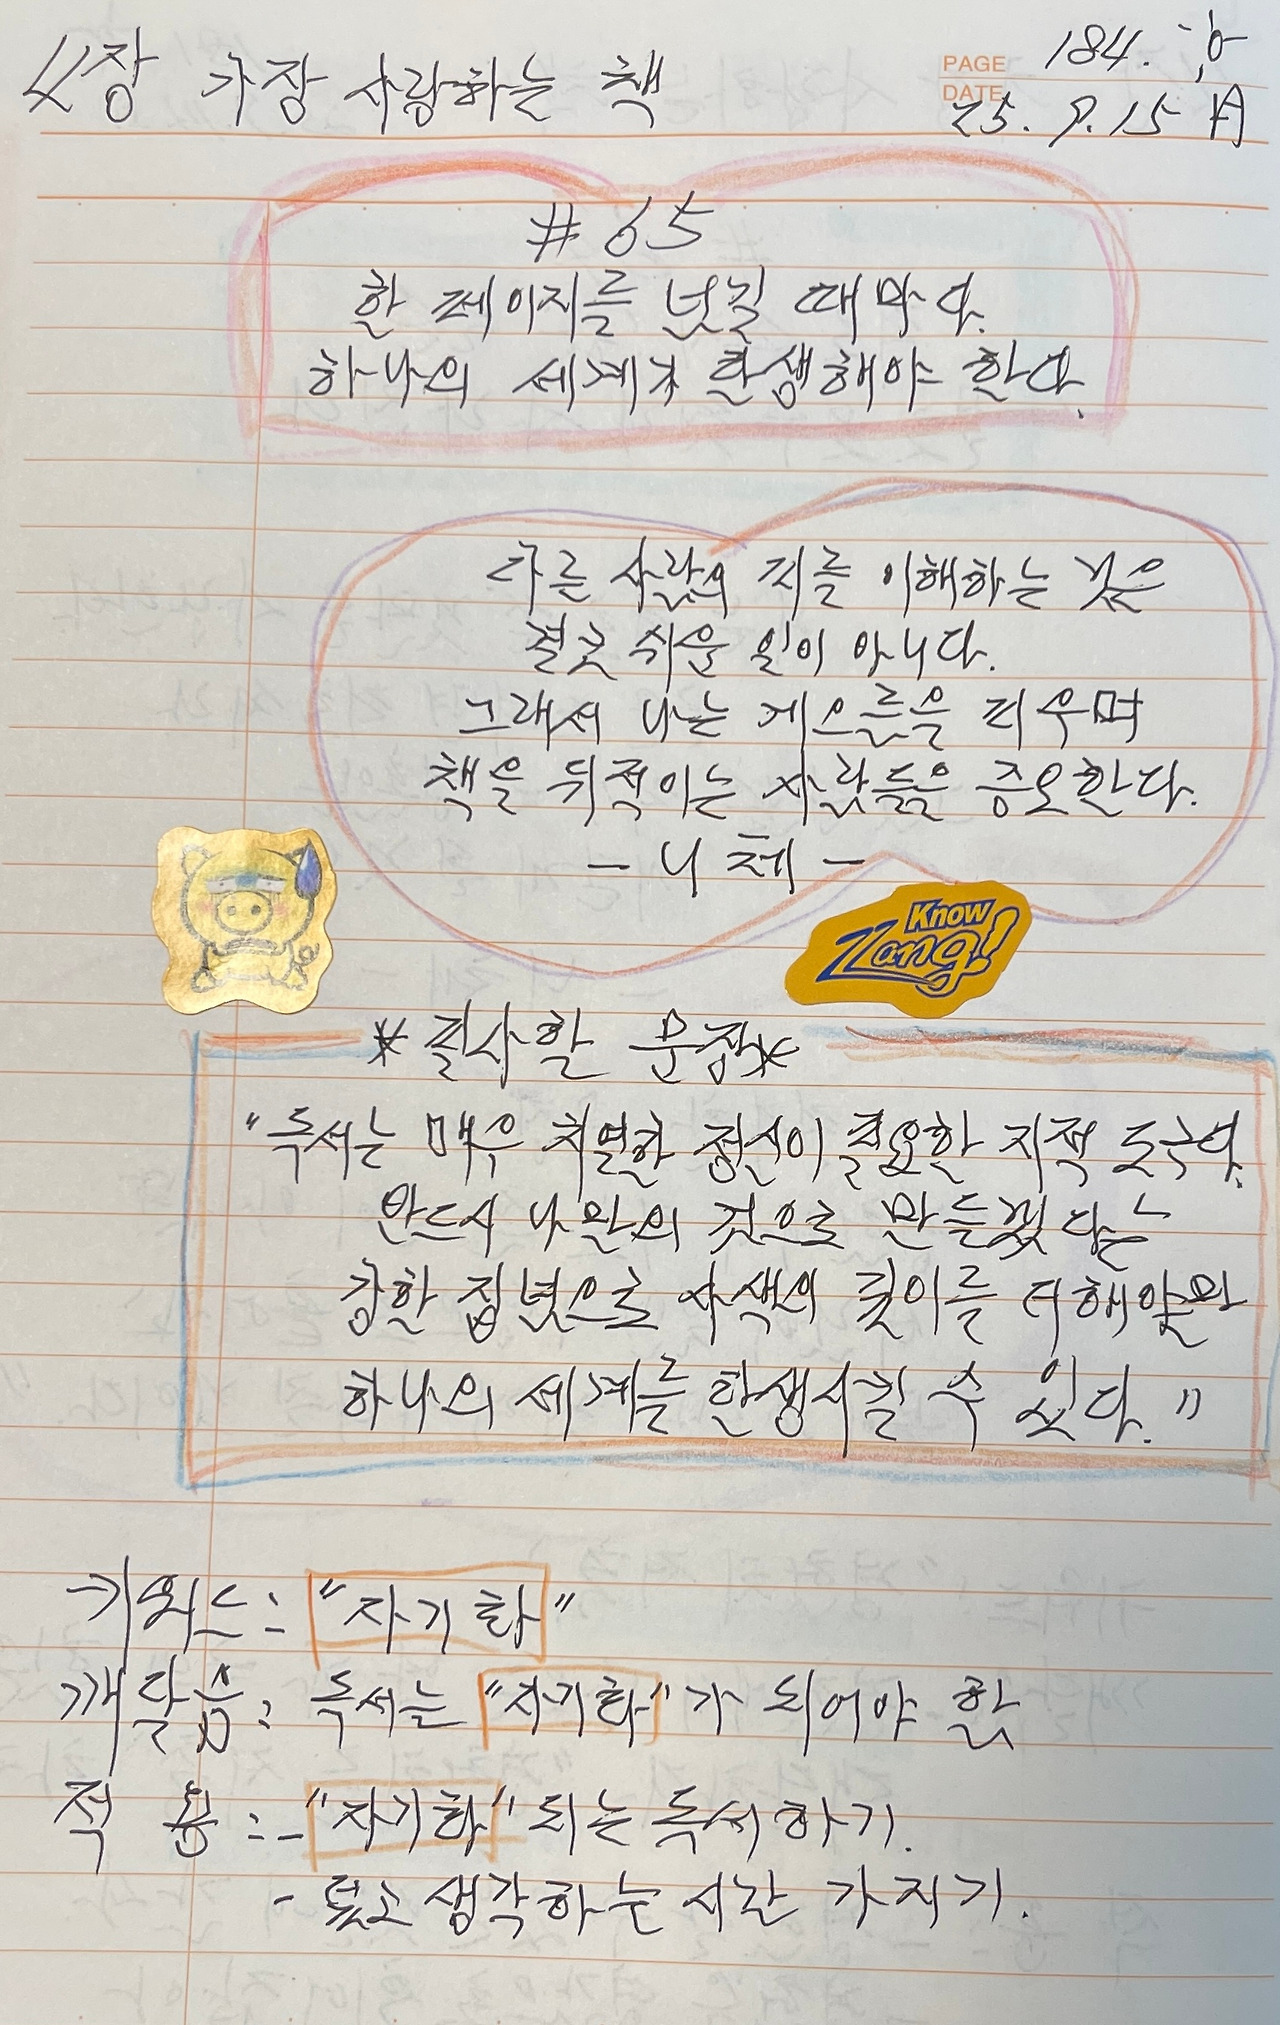 4장 가장 사랑하는 책
PAGE 184.
DATE 25. 9. 15 月
# 65
한 페이지를 넘길 때마다.
하나의 세계가 탄생해야 한다.
다른 사람의 피를 이해하는 것은
결코 쉬운 일이 아니다.
그래서 나는 게으름을 피우며
책을 뒤적이는 사람들을 증오한다.
- 니체 -
Know
Zzang!
*필사할 문장*
"독서는 매우 치열한 정신이 필요한 지적 도구다.
반드시 나만의 것으로 만들겠다는
강한 집념으로 사색의 깊이를 더해야만
하나의 세계를 탄생시킬 수 있다."
키워드: "자기화"
깨달음: 독서는 "자기화"가 되어야 함
적 용: - "자기화" 되는 독서하기.
- 덮고 생각하는 시간 가지기.